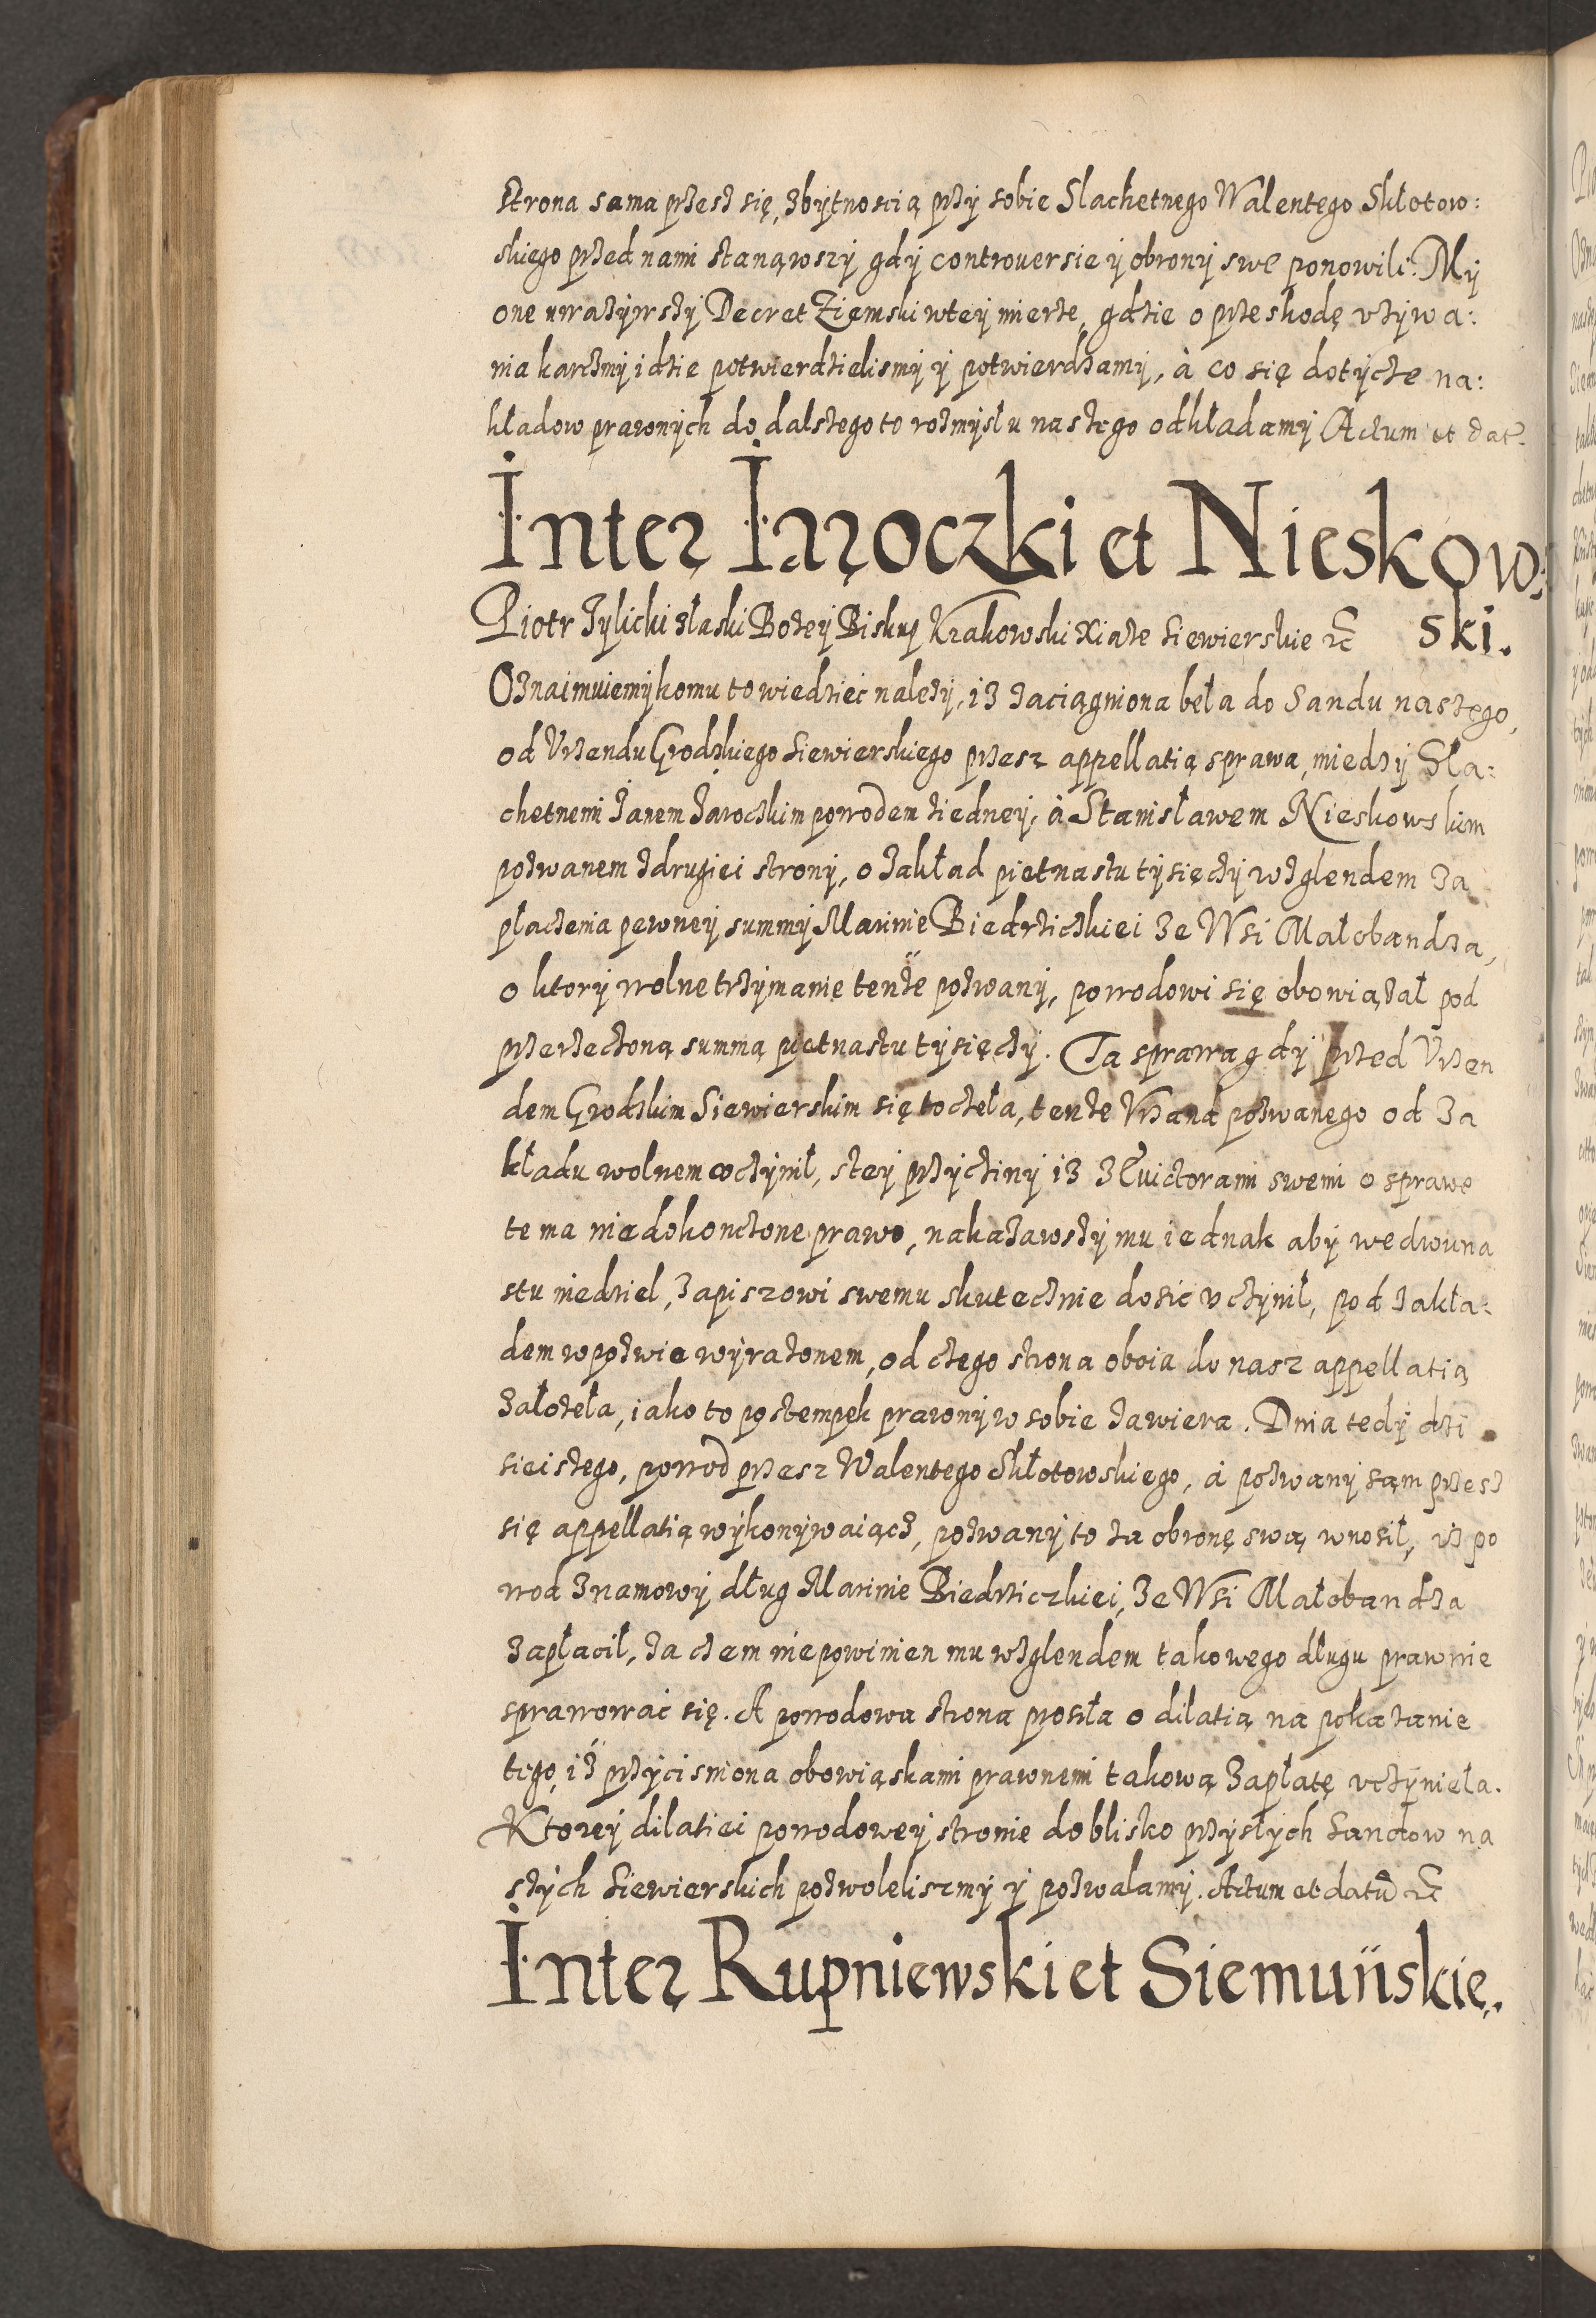 strona sama przesz się, zbytnoscią przy sobie Slachetnego Walentego Skłotow:
skiego przed nami stanąwszy gdy controuersie y obrony swe ponowili: My
one uwazywszy Decret Ziemski wtey mierze, gdzie o przeskodę vzywa:
nia karczmy idzie potwierdzielismy y potwierdzamy, à co się dotycze na:
kładow prawnych do dalszego to rozmysłu naszego odkładamy Actum et dat.
Inter Jaroczki et Nieskow:
ski.
Piotr Tylicki złaski Bozey Biskup Krakowski Xiąze Siewierskie etc
Oznaimuiemy komu to wiedzieć nalezy, iz zaciągniona beła do Sandu naszego,
od Vrzendu Grodzkiego Siewierskiego przesz appellatią sprawa, miedzy Sla:
chetnemi Janem Jaroczkim powodem ziedney, à Stanisławem Nieskowskim
pozwanem zdrugiei strony, o zakład pietnastu tysięczy wzglendem za
płaczenia pewney summy Marinie Biedrziczkiei Ze Wsi Małobandza,
o ktory wolne trzymanie tenze pozwany, powodowi się obowiązał pod
przerzeczoną summą pietnastu tysięczy. Ta sprawa gdy przed Vrzen
dem Grodzkim Siewierskim się toczeła, tenze Vrzand pozwanego od za
kładu wolnem vczynił, stey przycziny iz z Euictorami swemi o sprawe
te ma niedokonczone prawo, nakazawszy mu iednak aby wedwuna
stu niedziel, zapiszowi swemu skutecznie dosić vczynił, pod zakła:
dem wpozwie wyrazonem, od czego strona oboia do nasz appellatią
załozeła, iako to postempek prawny w sobie zawiera. Dnia tedy dzi
sieiszego, powod przesz Walentego Skłotowskiego, à pozwany sąm przesz
się appellatią wykonywaiącz, pozwany to za obronę swą wnosił, iz po
wod znamowy dług Marinie Biedrziczkiei, Ze Wsi Małobandza
zapłacił, za czem niepowinien mu wzglendem takowego długu prawnie
sprawować się. A powodowa strona prosiła o dilatią na pokazanie
tego, iz przycisniona obowiąskami prawnemi takową zapłatę vczynieła.
Ktorey dilatiei powodowey stronie doblisko przysłych Sandow na
szych Siewierskich pozwoleliszmy y pozwalamy. Actum et datū etc
Inter Rupniewski et Siemuńskie.